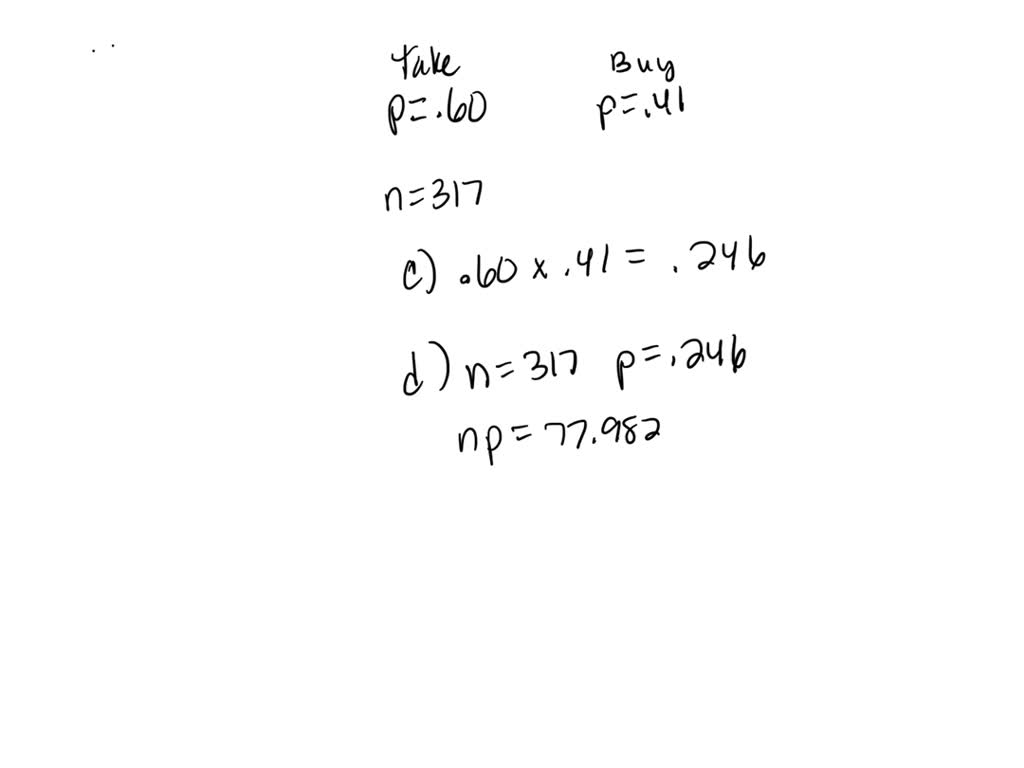 Take Buy
p=.60 p=.41
n=317
c) .60 x .41 = .246
d) n=317 p=.246
np=77.982